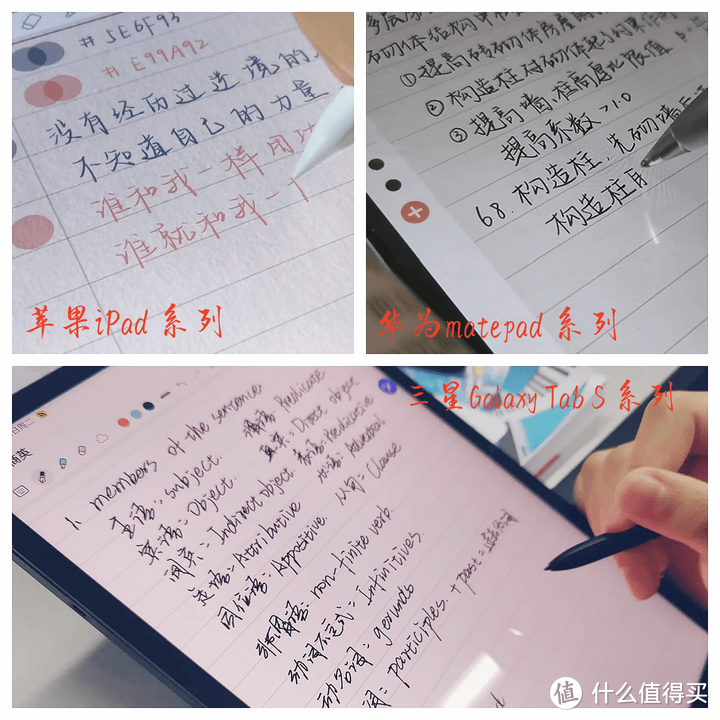 #5E6F93
#E99A92
没有经历过逆境的人
不知道自己的力量
谁和我一样用功
谁就和我一
苹果iPad 系列
①提高砖砌体房屋
②构造柱对砌体起
③提高墙、柱高厚比限值
提高系数>1.0
68.构造柱,先砌墙后
构造柱
华为matepad 系列
三星Galaxy Tab S 系列
1. members of the sentence
主语:subject.
宾语:Object.
间宾:Indirect object.
定语=Attributive
同位语:Appositive.
谓语 Predicate
直宾:Direct object
表语:Predicative
状语:Adverbial
从句:Clause
非谓语:non-finite verb.
动词不定式=Infinitives.
动名词=gerunds
participles.
+past=
值 什么值得买